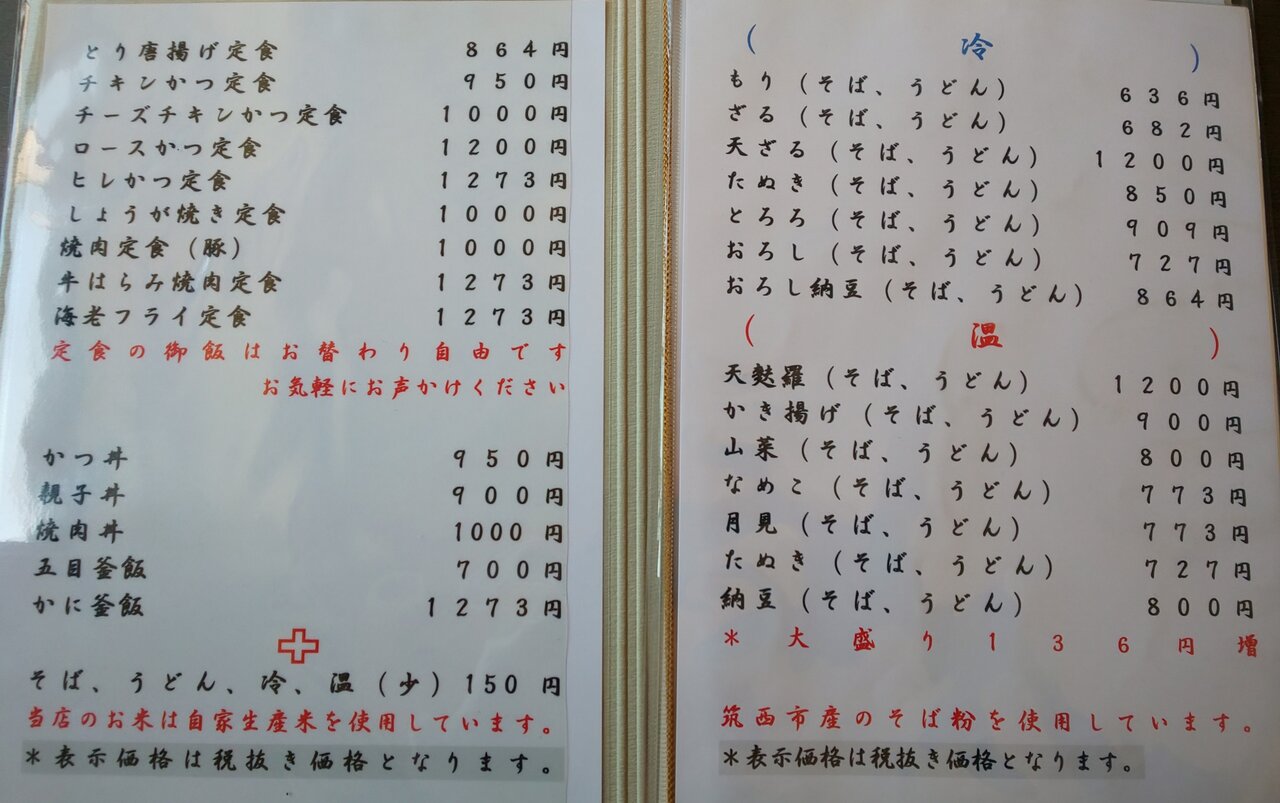 とり唐揚げ定食 864円
チキンかつ定食 950円
チーズチキンかつ定食 1000円
ロースかつ定食 1200円
ヒレかつ定食 1273円
しょうが焼き定食 1000円
焼肉定食(豚) 1000円
牛はらみ焼肉定食 1273円
海老フライ定食 1273円
定食の御飯はお替わり自由です
お気軽にお声かけください
かつ丼 950円
親子丼 900円
焼肉丼 1000円
五目釜飯 700円
かに釜飯 1273円
そば、うどん、冷、温(少)150円
当店のお米は自家生産米を使用しています。
*表示価格は税抜き価格となります。
(冷)
もり(そば、うどん) 636円
ざる(そば、うどん) 682円
天ざる(そば、うどん) 1200円
たぬき(そば、うどん) 850円
とろろ(そば、うどん) 909円
おろし(そば、うどん) 727円
おろし納豆(そば、うどん) 864円
(温)
天麩羅(そば、うどん) 1200円
かき揚げ(そば、うどん) 900円
山菜(そば、うどん) 800円
なめこ(そば、うどん) 773円
月見(そば、うどん) 773円
たぬき(そば、うどん) 727円
納豆(そば、うどん) 800円
*大盛り136円増
筑西市産のそば粉を使用しています。
*表示価格は税抜き価格となります。